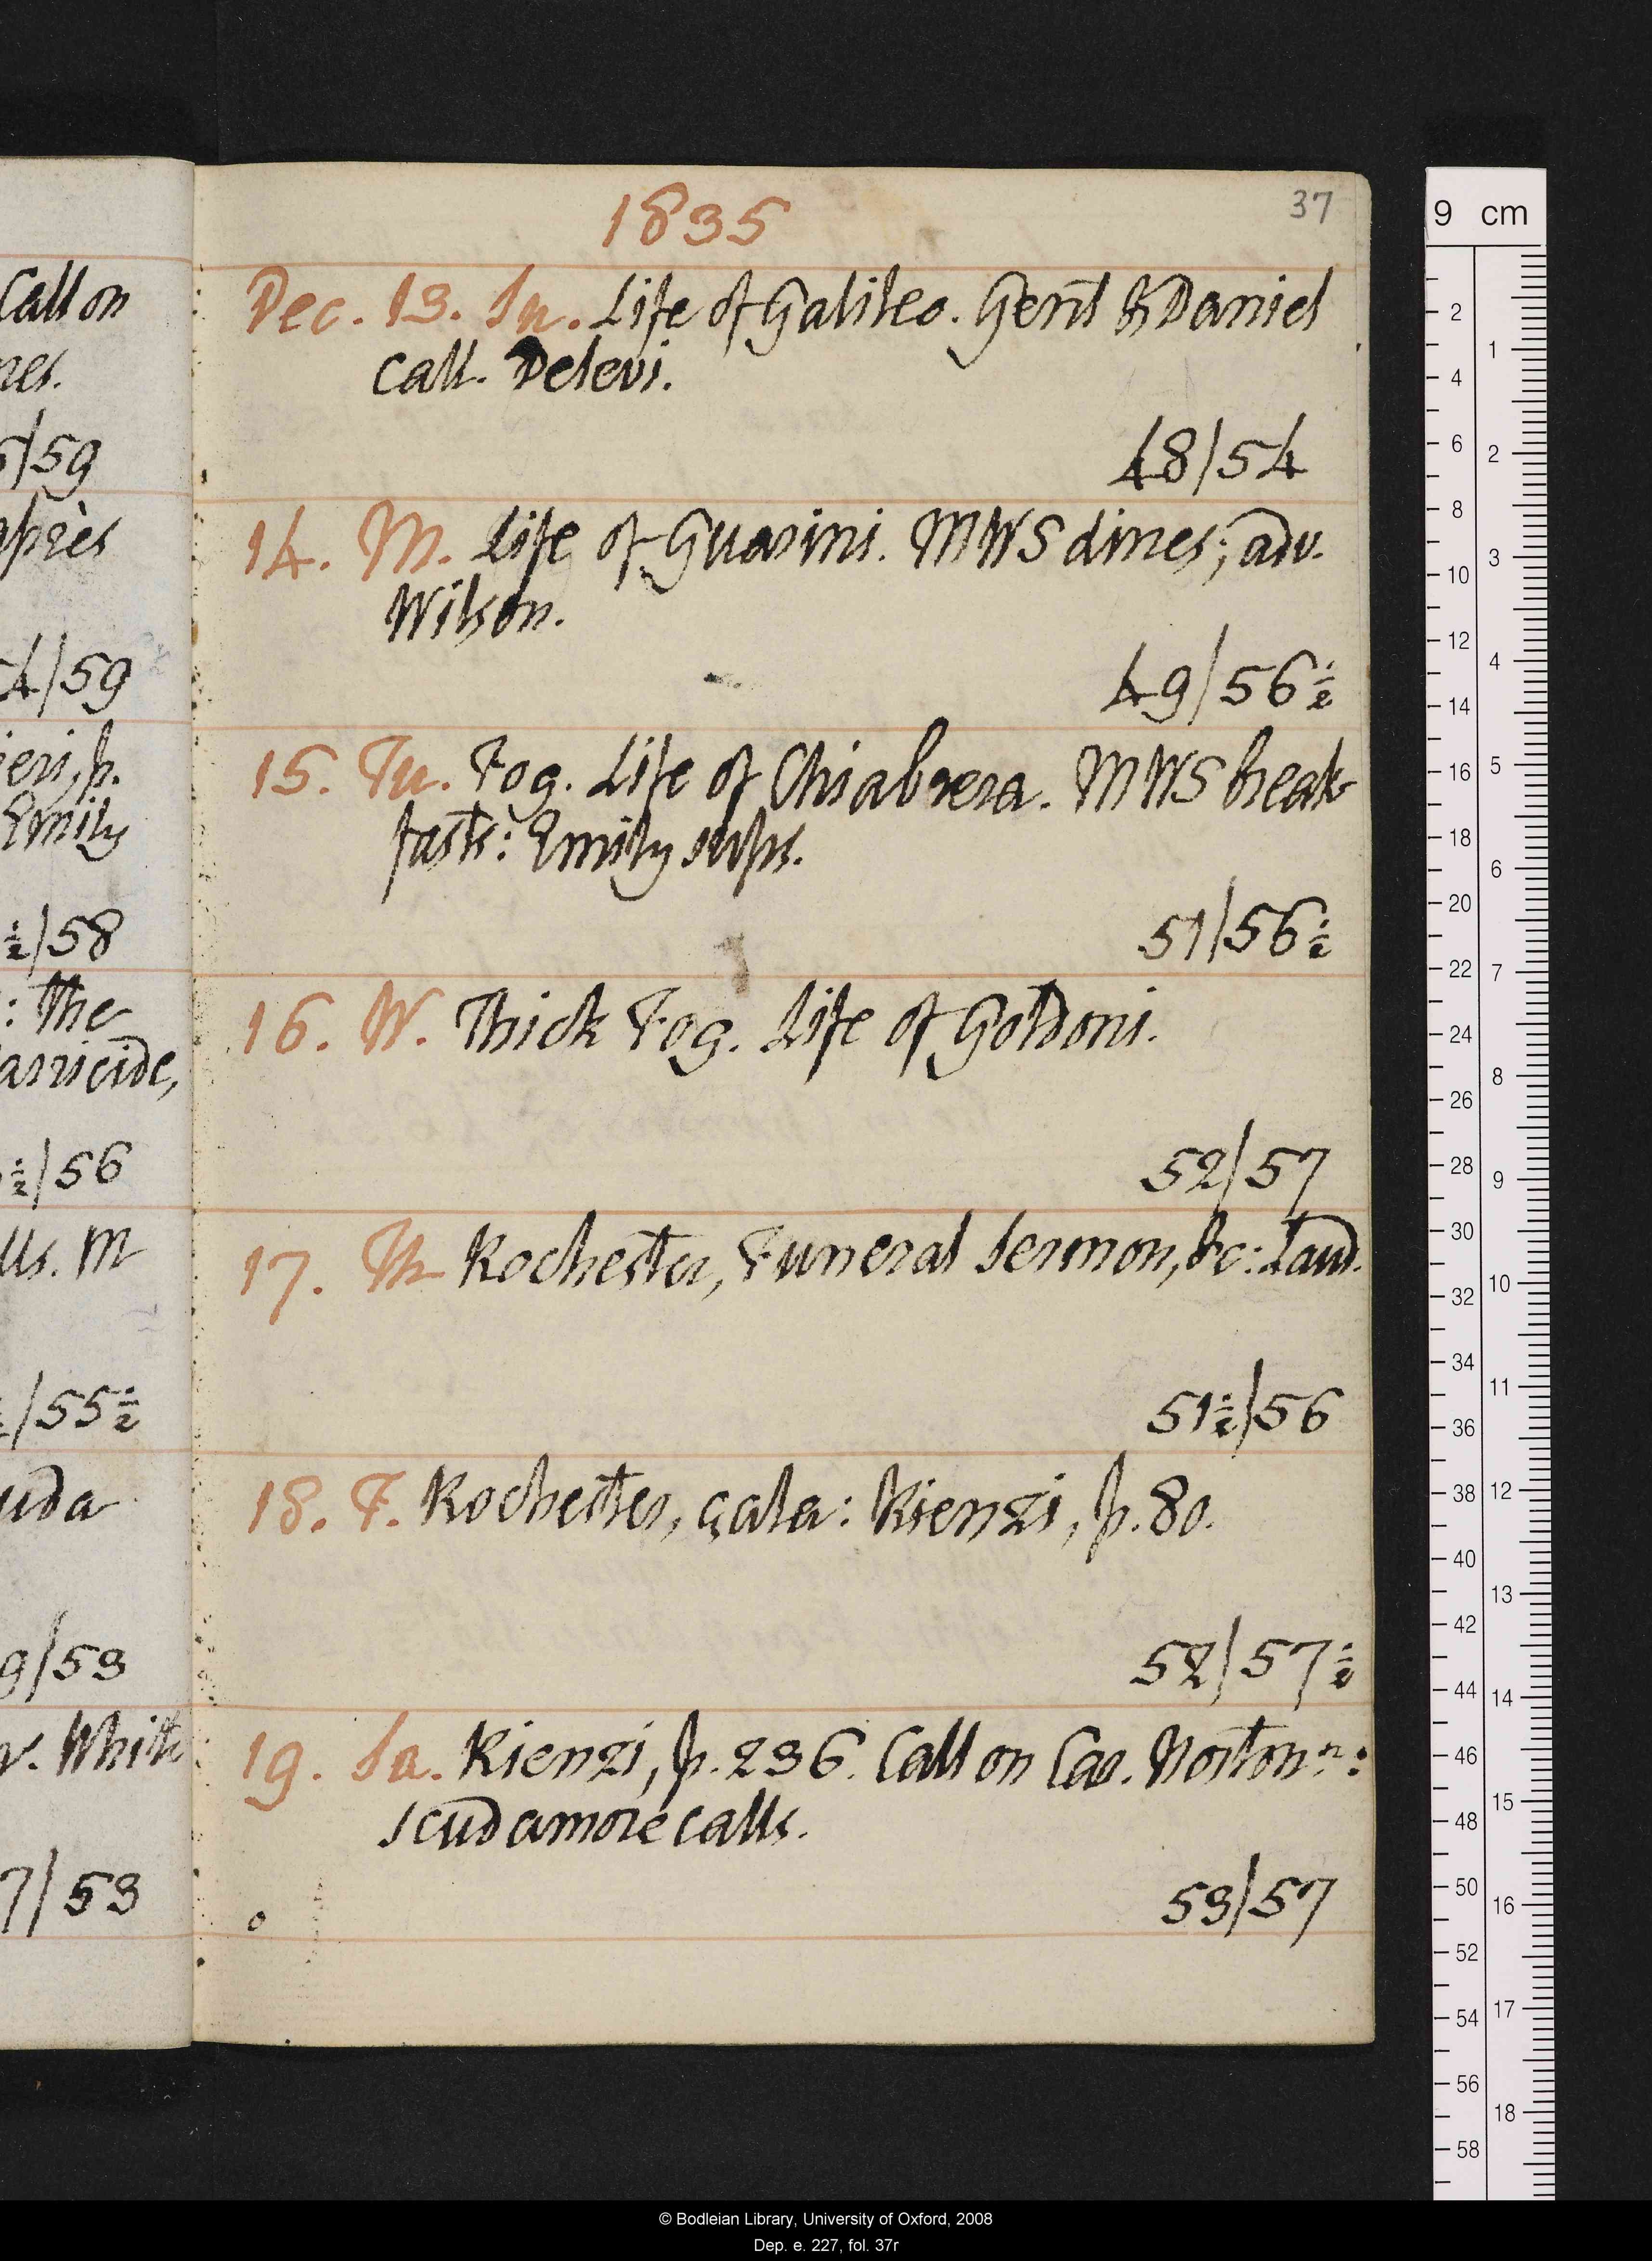 Call on
nes.
5/59
après
4/59
ieri, p.
Emily
½/58
: The
arricide,
½/56
lls. M
/55½
uda
9/53
v. White
7/53
1835
37
Dec. 13. Su. Life of Galileo. Gent & Daniel
call. Delevi.
48/54
14. M. Life of Guarini. MWS dines; adv.
Wilson.
49/56½
15. Tu. Fog. Life of Chiabrera. MWS break-
fasts: Emily sups.
51/56½
16. W. Thick Fog. Life of Goldoni.
52/57
17. Th Rochester, Funeral Sermon, &c: Laud.
51½/56
18. F. Rochester, çala: Rienzi, p. 80.
52/57½
19. Sa. Rienzi, p. 236. Call on Car. Norton n:
Scudamore calls.
53/57
9 cm
2
4
6
8
10
12
14
16
18
20
22
24
26
28
30
32
34
36
38
40
42
44
46
48
50
52
54
56
58
1
2
3
4
5
6
7
8
9
10
11
12
13
14
15
16
17
18
© Bodleian Library, University of Oxford, 2008
Dep. e. 227, fol. 37r